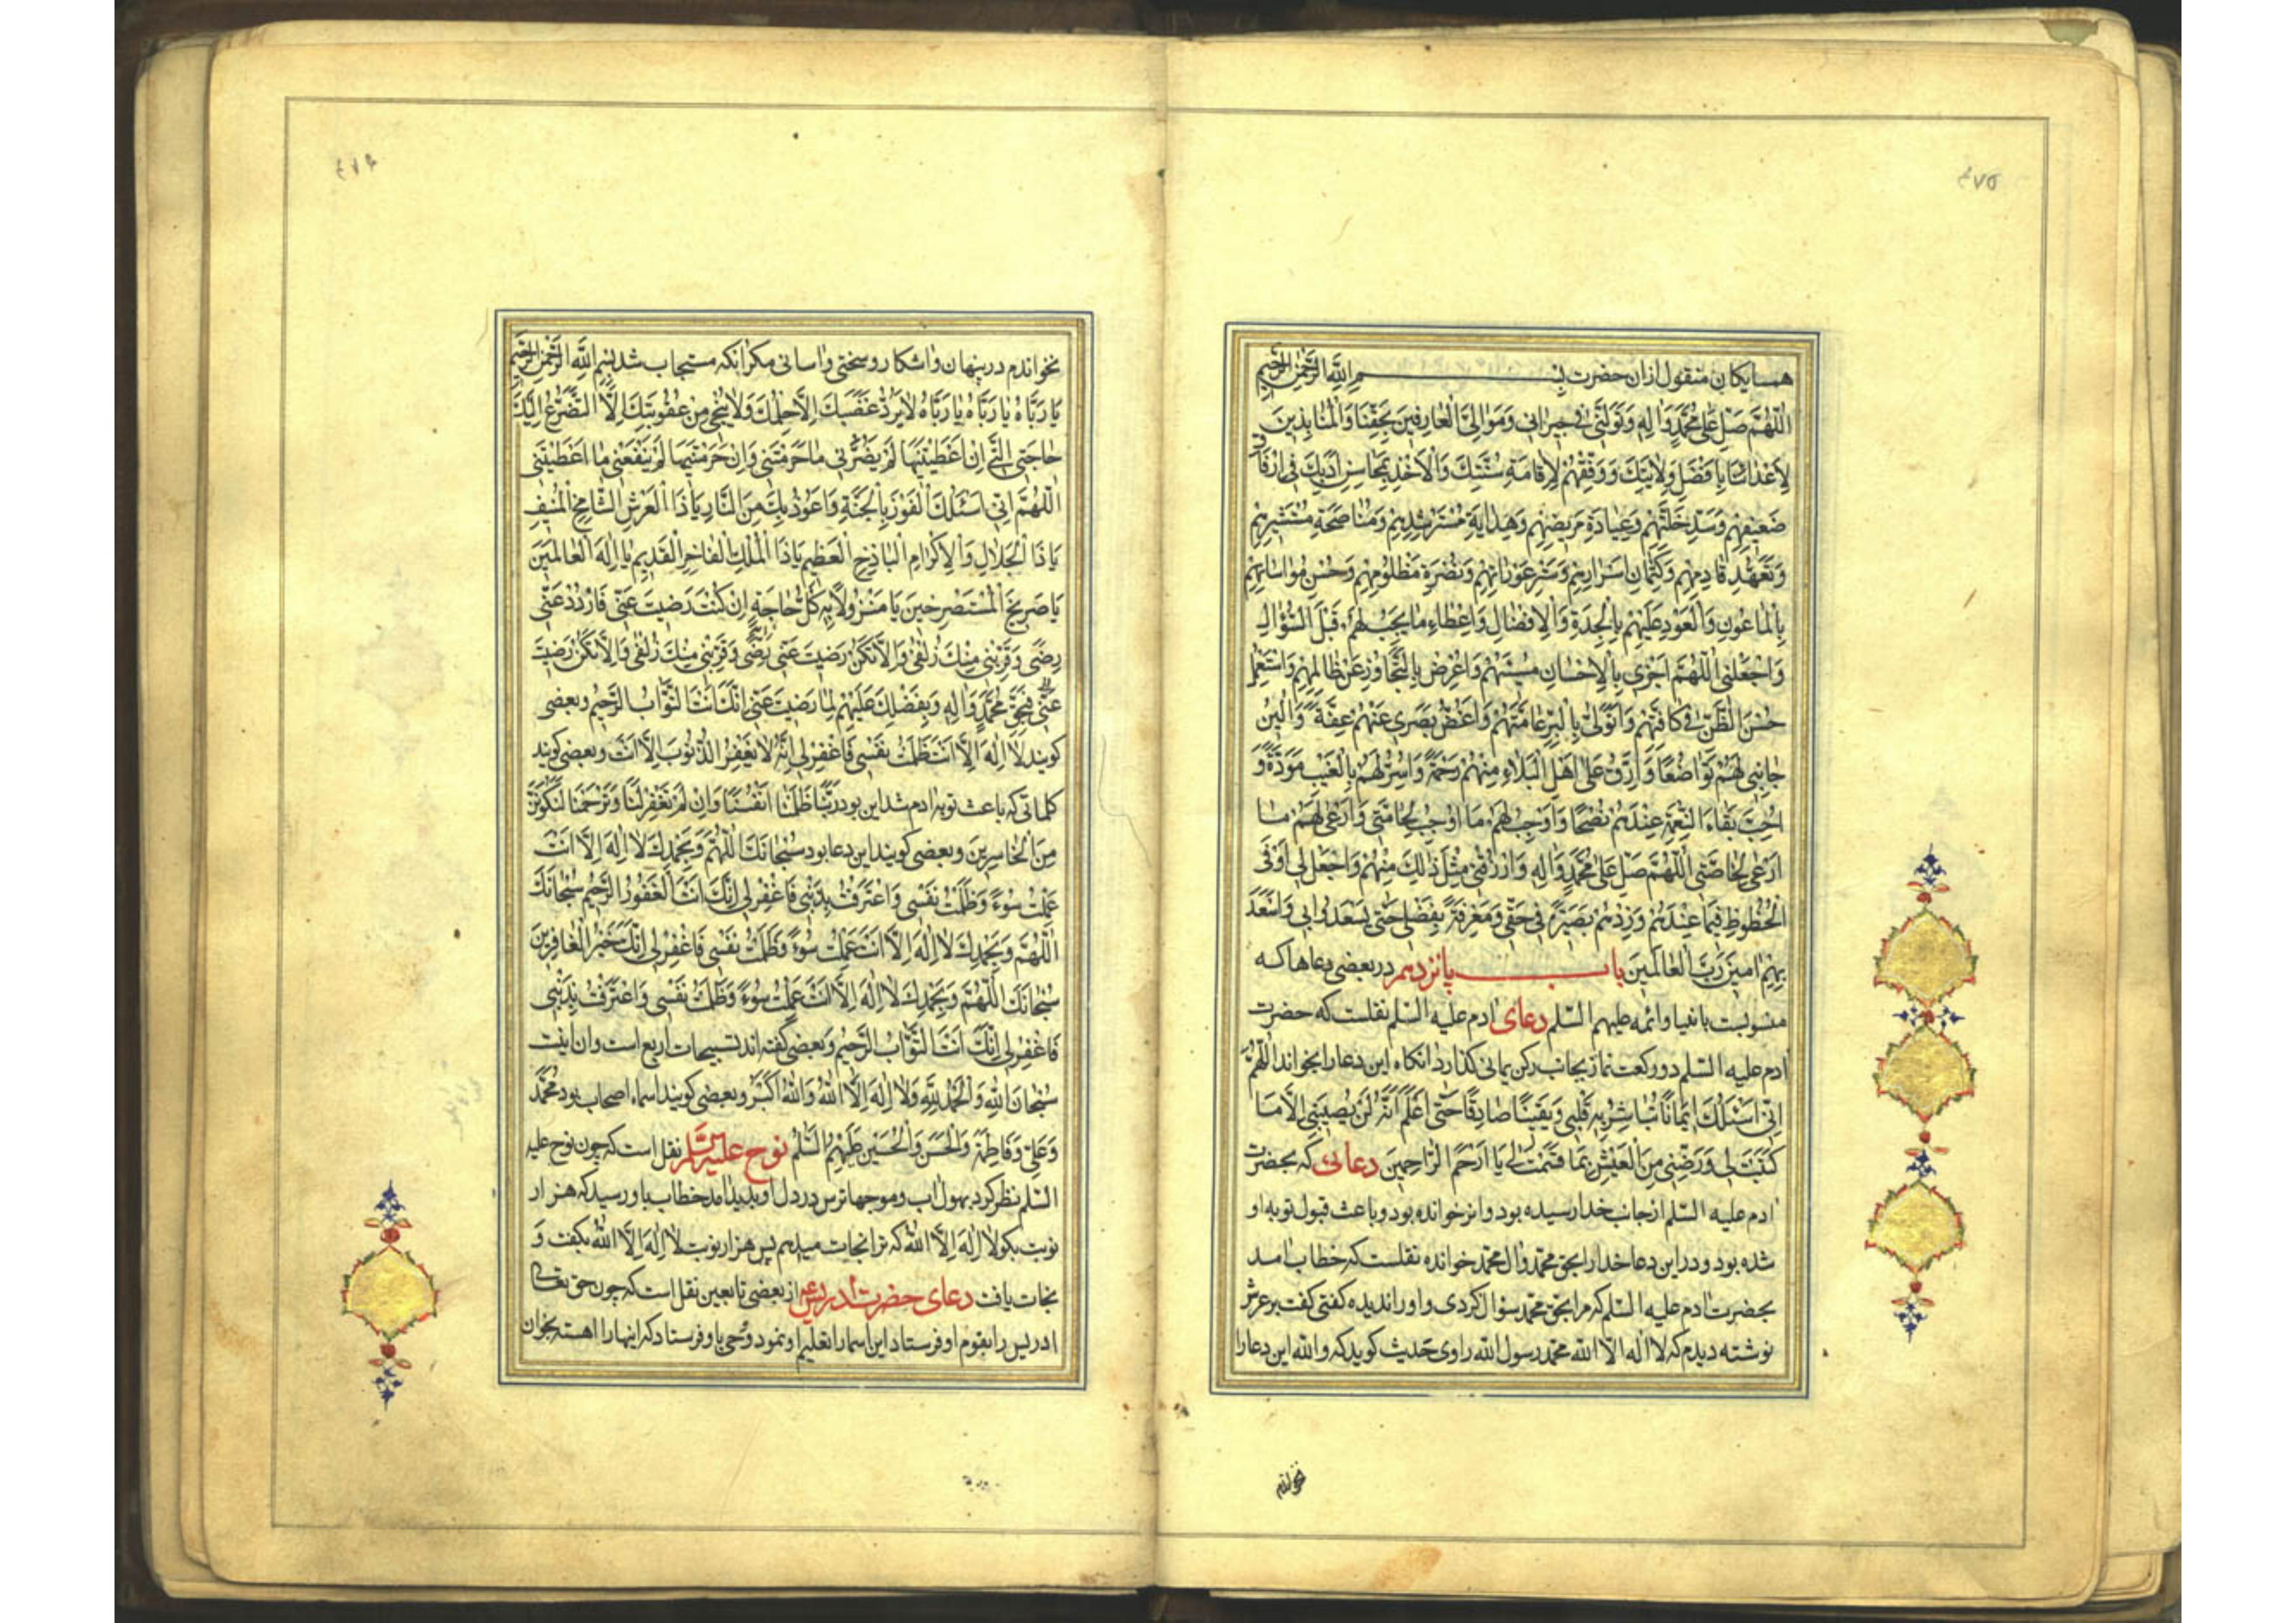 ٤٧٥
همسایکان منقول ازان حضرت بِسْمِ اللّٰهِ الرَّحْمٰنِ الرَّحِیمِ
اَللّٰهُمَّ صَلِّ عَلٰی مُحَمَّدٍ وَاٰلِهِ وَتَوَلَّنِی فِی جِیرَانِی وَمَوَالِیَّ الْعَارِفِینَ بِحَقِّنَا وَالْمُنَابِذِینَ
لِاَعْدَائِنَا بِاَفْضَلِ وَلَایَتِكَ وَوَفِّقْهُمْ لِاِقَامَةِ سُنَّتِكَ وَالْاَخْذِ بِمَحَاسِنِ اَدَبِكَ فِی اِرْفَاقِ
ضَعِیفِهِمْ وَسَدِّ خَلَّتِهِمْ وَعِیَادَةِ مَرِیضِهِمْ وَهِدَایَةِ مُسْتَرْشِدِهِمْ وَمُنَاصَحَةِ مُسْتَشِیرِهِمْ
وَتَعَهُّدِ قَادِمِهِمْ وَكِتْمَانِ اَسْرَارِهِمْ وَسَتْرِ عَوْرَاتِهِمْ وَنُصْرَةِ مَظْلُومِهِمْ وَحُسْنِ مُوَاسَاتِهِمْ
بِالْمَاعُونِ وَالْعَوْدِ عَلَیْهِمْ بِالْجِدَةِ وَالْاِفْضَالِ وَاِعْطَاءِ مَا یَجِبُ لَهُمْ قَبْلَ السُّؤَالِ
وَاجْعَلْنِی اَللّٰهُمَّ اَجْزِی بِالْاِحْسَانِ مُسِیئَهُمْ وَاُعْرِضُ بِالتَّجَاوُزِ عَنْ ظَالِمِهِمْ وَاَسْتَعْمِلُ
حُسْنَ الظَّنِّ فِی كَافَّتِهِمْ وَاَتَوَلّٰی بِالْبِرِّ عَامَّتَهُمْ وَاَغُضُّ بَصَرِی عَنْهُمْ عِفَّةً وَاُلِینُ
جَانِبِی لَهُمْ تَوَاضُعًا وَاَرِقُّ عَلٰی اَهْلِ الْبَلَاءِ مِنْهُمْ رَحْمَةً وَاُسِرُّ لَهُمْ بِالْغَیْبِ مَوَدَّةً وَ
اُحِبُّ بَقَاءَ النِّعْمَةِ عِنْدَهُمْ نُصْحًا وَاُوجِبُ لَهُمْ مَا اُوجِبُ لِحَامَّتِی وَاَرْعٰی لَهُمْ مَا
اَرْعٰی لِخَاصَّتِی اَللّٰهُمَّ صَلِّ عَلٰی مُحَمَّدٍ وَاٰلِهِ وَارْزُقْنِی مِثْلَ ذٰلِكَ مِنْهُمْ وَاجْعَلْ لِی اَوْفَی
الْحُظُوظِ فِیمَا عِنْدَهُمْ وَزِدْهُمْ بَصِیرَةً فِی حَقِّی وَمَعْرِفَةً بِفَضْلِی حَتّٰی یَسْعَدُوا بِی وَاَسْعَدَ
بِهِمْ اٰمِینَ رَبَّ الْعَالَمِینَ باب پانزدهم در بعضی دعاها که
منسوبست بانبیا وائمه علیهم السّلم دعای ادم علیه السّلم نقلست که حضرت
ادم علیه السّلم دو رکعت نماز بجانب رکن یمانی کذارد انکاه این دعا را بخواند اَللّٰهُمَّ
اِنِّی اَسْئَلُكَ اِیمَانًا تُبَاشِرُ بِهِ قَلْبِی وَیَقِینًا صَادِقًا حَتّٰی اَعْلَمَ اَنَّهُ لَنْ یُصِیبَنِی اِلَّا مَا
كَتَبْتَ لِی وَرَضِّنِی مِنَ الْعَیْشِ بِمَا قَسَمْتَ لِی یَا اَرْحَمَ الرَّاحِمِینَ دعائی که بحضرت
ادم علیه السّلم از جانب خدا رسیده بود وانرا خوانده بود وباعث قبول توبه او
شده بود ودر این دعا خدا را بحق محمّد وال محمّد خوانده نقلست که خطاب امد
بحضرت ادم علیه السّلم که مرا بحق محمّد سؤال کردی واو را ندیده کفتی کفت بر عرش
نوشته دیدم که لا اله الّا اللّٰه محمّد رسول اللّٰه راوی حدیث کوید که واللّٰه این دعا را
٤٧٦
نخواندم در پنهان واشکارو سختی واسانی مکر انکه مستجاب شد بِسْمِ اللّٰهِ الرَّحْمٰنِ الرَّحِیمِ
یَا رَبَّاهُ یَا رَبَّاهُ یَا رَبَّاهُ لَا یَرُدُّ غَضَبَكَ اِلَّا حِلْمُكَ وَلَا یُنْجِی مِنْ عُقُوبَتِكَ اِلَّا التَّضَرُّعُ اِلَیْكَ
حَاجَتِیَ الَّتِی اِنْ اَعْطَیْتَنِیهَا لَمْ یَضُرَّنِی مَا حَرَمْتَنِی وَاِنْ حَرَمْتَنِیهَا لَمْ یَنْفَعْنِی مَا اَعْطَیْتَنِی
اَللّٰهُمَّ اِنِّی اَسْئَلُكَ الْفَوْزَ بِالْجَنَّةِ وَاَعُوذُ بِكَ مِنَ النَّارِ یَا ذَا الْعَرْشِ الشَّامِخِ الْمُنِیفِ
یَا ذَا الْجَلَالِ وَالْاِكْرَامِ الْبَاذِخِ الْعَظِیمِ یَا ذَا الْمُلْكِ الْفَاخِرِ الْقَدِیمِ یَا اِلٰهَ الْعَالَمِینَ
یَا صَرِیخَ الْمُسْتَصْرِخِینَ یَا مَنْزُولًا بِهِ كُلُّ حَاجَةٍ اِنْ كُنْتَ رَضِیتَ عَنِّی فَازْدَدْ عَنِّی
رِضًی وَقَرِّبْنِی مِنْكَ زُلْفٰی وَاِلَّا تَكُنْ رَضِیتَ عَنِّی وَقَرِّبْنِی مِنْكَ زُلْفٰی وَاِلَّا تَكُنْ رَضِیتَ
عَنِّی فَبِحَقِّ مُحَمَّدٍ وَاٰلِهِ وَبِفَضْلِكَ عَلَیْهِمْ لَمَّا رَضِیتَ عَنِّی اِنَّكَ اَنْتَ التَّوَّابُ الرَّحِیمُ وبعضی
کویند لَا اِلٰهَ اِلَّا اَنْتَ ظَلَمْتُ نَفْسِی فَاغْفِرْ لِی اِنَّهُ لَا یَغْفِرُ الذُّنُوبَ اِلَّا اَنْتَ وبعضی کویند
کلماتی که باعث توبه ادم شد این بود رَبَّنَا ظَلَمْنَا اَنْفُسَنَا وَاِنْ لَمْ تَغْفِرْ لَنَا وَتَرْحَمْنَا لَنَكُونَنَّ
مِنَ الْخَاسِرِینَ وبعضی کویند این دعا بود سُبْحَانَكَ اللّٰهُمَّ وَبِحَمْدِكَ لَا اِلٰهَ اِلَّا اَنْتَ
عَمِلْتُ سُوءً وَظَلَمْتُ نَفْسِی وَاعْتَرَفْتُ بِذَنْبِی فَاغْفِرْ لِی اِنَّكَ اَنْتَ الْغَفُورُ الرَّحِیمُ سُبْحَانَكَ
اللّٰهُمَّ وَبِحَمْدِكَ لَا اِلٰهَ اِلَّا اَنْتَ عَمِلْتُ سُوءً وَظَلَمْتُ نَفْسِی فَاغْفِرْ لِی اِنَّكَ خَیْرُ الْغَافِرِینَ
سُبْحَانَكَ اللّٰهُمَّ وَبِحَمْدِكَ لَا اِلٰهَ اِلَّا اَنْتَ عَمِلْتُ سُوءً وَظَلَمْتُ نَفْسِی وَاعْتَرَفْتُ بِذَنْبِی
فَاغْفِرْ لِی اِنَّكَ اَنْتَ التَّوَّابُ الرَّحِیمُ وبعضی کفته اند تسبیحات اربع است وان اینست
سُبْحَانَ اللّٰهِ وَالْحَمْدُ لِلّٰهِ وَلَا اِلٰهَ اِلَّا اللّٰهُ وَاللّٰهُ اَكْبَرُ وبعضی کویند اسماء اصحاب بود مُحَمَّدٌ
وَعَلِیٌّ وَفَاطِمَةُ وَالْحَسَنُ وَالْحُسَیْنُ عَلَیْهِمُ السَّلٰمُ نوح علیه السّلم نقل است که چون نوح علیه
السّلم نظر کرد بهول اب وموجها ترس در دل او پدید امد خطاب باو رسید که هزار
نوبت بکو لَا اِلٰهَ اِلَّا اللّٰهُ که ترا نجات میدهم پس هزار نوبت لَا اِلٰهَ اِلَّا اللّٰهُ بکفت وَ
نجات یافت دعای حضرت ادریس ع از بعضی تابعین نقل است که چون حق تعالی
ادریس را بقوم او فرستاد این اسما را تعلیم او نمود ووحی باو فرستاد که اینها را اهسته بخوان
نخواندم